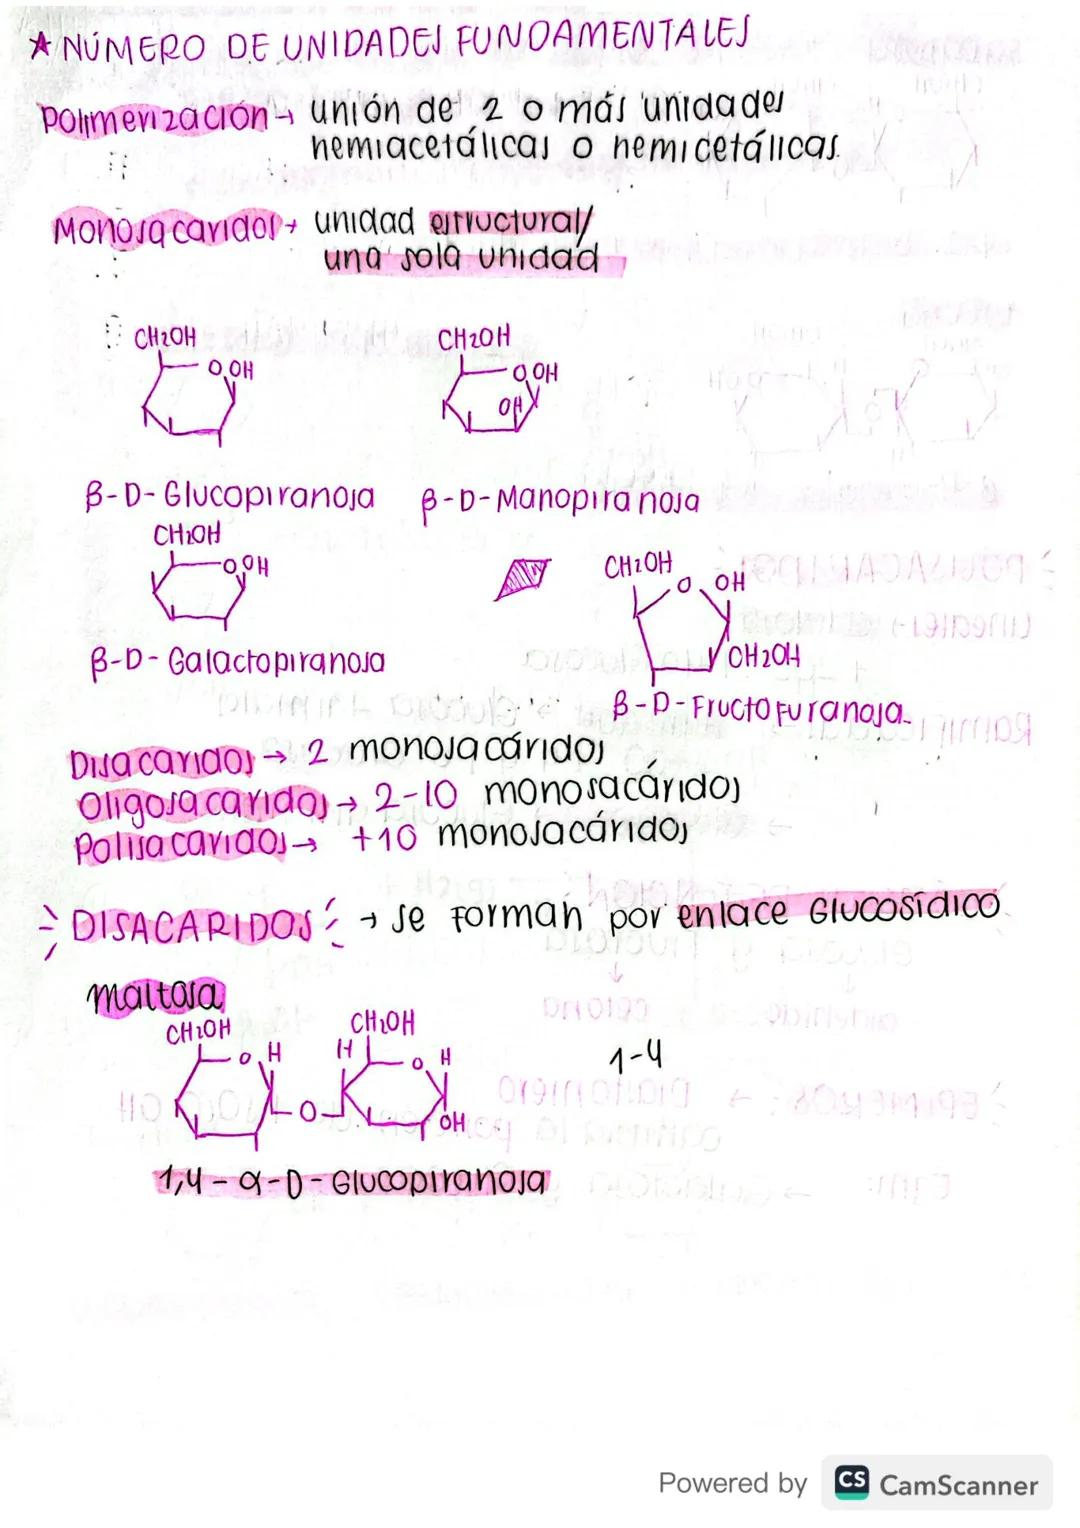 ★ NÚMERO DE UNIDADES FUNDAMENTALES
Polimerización → unión de 2 o más unidades
hemiacetálicas o hemicetálicas.
Monosacaridos → unidad estructural/
una sola unidad
CH2OH CH2OH
O OH O OH
OH
β-D-Glucopiranosa β-D-Manopiranosa
CH2OH
O OH
CH2OH
O OH
CH2OH
β-D-Galactopiranosa
β-D-Fructofuranosa.
Disacaridos → 2 monosacáridos
Oligosacaridos → 2-10 monosacáridos
Polisacaridos → +10 monosacáridos
DISACARIDOS → se forman por enlace Glucosídico
maltosa
CH2OH CH2OH
O H H O H
1-4
O OH
1,4-α-D-Glucopiranosa
Powered by CS CamScanner